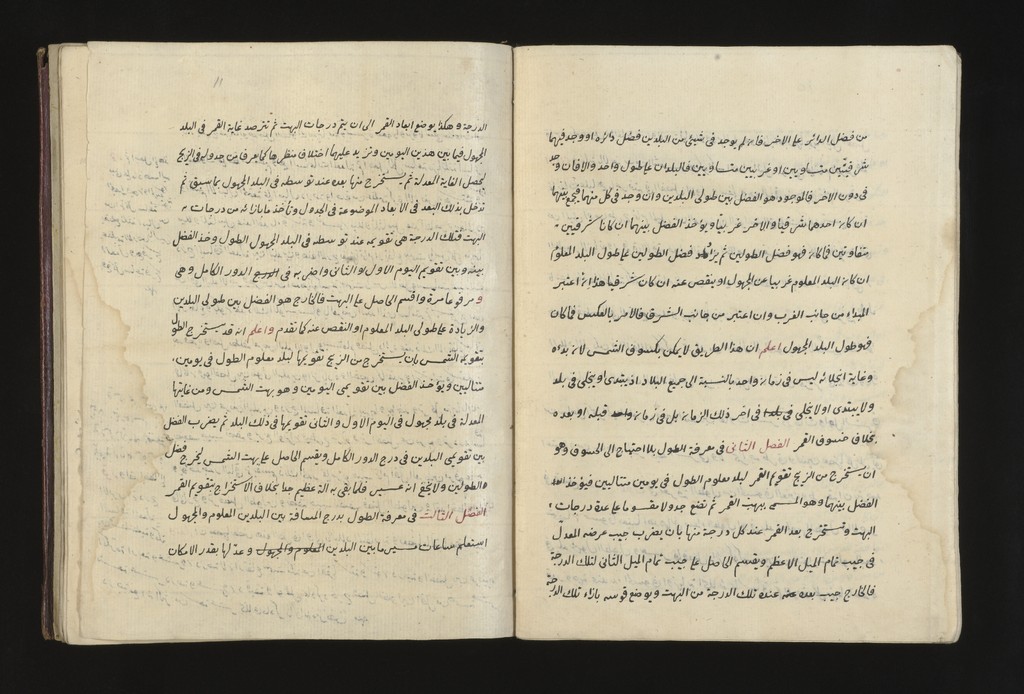 من فضل الدائر على الاخر فان لم يوجد فى شيئ من البلدين فضل دائره او وجد فيهما
شرقيتين متساويين او غربيين متساويين فالبلدان على طول واحد والا فان وجد
فى دون الاخر فالموجود هو الفضل بين طولى البلدين وان وجد فى كل منهما فيجمع بينهما
ان كان احدهما شرقيا والاخر غربيا ويؤخذ الفضل بينهما ان كانا شرقيين
متفاوتين فما كان فهو فضل الطولين ثم يزاد فضل الطولين على طول البلد المعلوم
ان كان البلد المعلوم غربيا عن المجهول او ينقص عنه ان كان شرقيا هذا اذا اعتبر
المبداء من جانب الغرب وان اعتبر من جانب الشرق فالامر بالعكس فما كان
فهو طول البلد المجهول اعلم ان هذا الطريق لا يمكن بكسوف الشمس لان بدءه
وغاية انجلائه ليس فى زمان واحد بالنسبة الى جميع البلاد اذ يبتدى او ينجلى فى بلد
ولا يبتدى او لا ينجلى فى اخر ذلك الزمان بل فى زمان قبله او بعده
بخلاف خسوف القمر الفصل الثانى فى معرفة الطول بلا احتياج الى الخسوف وهو
ان يستخرج من الزيج تقويم القمر لبلد معلوم الطول فى يومين متتاليين فيؤخذ
الفضل بينهما وهو المسمى ببهت القمر ثم تضع جدولا مقسوما على عدة درجات
البهت وتستخرج بعد القمر عند كل درجة منها بان يضرب جيب عرضه المعدل
فى جيب تمام الميل الاعظم ويقسم الحاصل على جيب تمام الميل الثانى لتلك الدرجة
فالخارج جيب بعده عند تلك الدرجة من البهت ويوضع قوسه بازاء تلك الدرجة
١١
الدرجة وهكذا يوضع ابعاد القمر الى ان يتم درجات البهت ثم تترصد غاية القمر فى البلد
المجهول فيما بين هذين اليومين وتزيد عليها اختلاف منظرها كما يعرف من جدوله فى الزيج
ليحصل الغاية المعدلة ثم يستخرج منها بعده عند توسطه فى البلد المجهول بما سبق ثم
تدخل بذلك البعد فى الابعاد الموضوعة فى الجدول وتأخذ ما بازائه من درجات
البهت فتلك الدرجة هى تقويمه عند توسطه فى البلد المجهول الطول وخذ الفضل
بينه وبين تقويم اليوم الاول او الثانى واضربه فى الدور الكامل وهى
مرفوعا مرة واقسم الحاصل على البهت فالخارج هو الفضل بين طولى البلدين
والزيادة على طولى البلد المعلوم او النقص عنه كما تقدم واعلم انه قد يستخرج الطول
بتقويم الشمس بان يستخرج من الزيج تقويمها لبلد معلوم الطول فى يومين
متتاليين ويؤخذ الفضل بين تقويمى اليومين وهو بهت الشمس ومن غايتها
المعدلة فى بلد مجهول فى اليوم الاول والثانى تقويمها فى ذلك البلد ثم يضرب الفضل
بين تقويمى البلدين فى درج الدور الكامل ويقسم الحاصل على بهت الشمس ليخرج فضل
الطولين ولا يخفى انه عسير فلما يقى به الة عظيم جدا بخلاف الاستخراج بتقويم القمر
الفصل الثالث فى معرفة الطول بدرج المسافة بين البلدين المعلوم والمجهول
استعلم ساعات مسير ما بين البلدين المعلوم والمجهول وعدلها بقدر الامكان